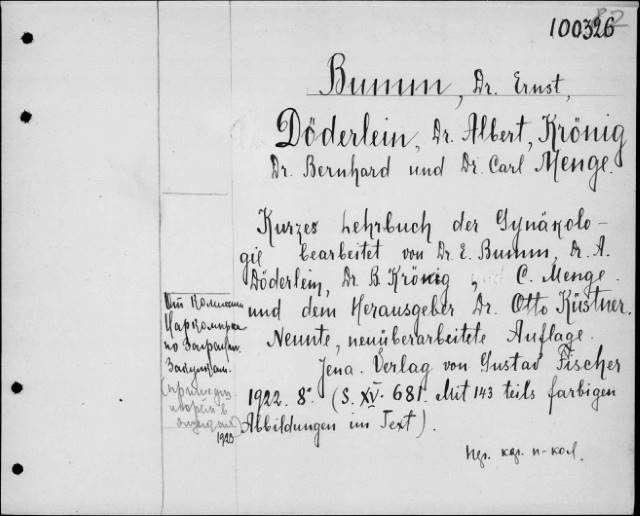 100326
82
Bumm, Dr. Ernst,
Döderlein, Dr. Albert, Krönig
Dr. Bernhard und Dr. Carl Menge.
Kurzes Lehrbuch der Gynäkolo-
gie bearbeitet von Dr. E. Bumm, Dr. A.
Döderlein, Dr. B. Krönig, und C. Menge
und dem Herausgeber Dr. Otto Küstner.
Neunte, neuüberarbeitete Auflage.
Jena. Verlag von Gustav Fischer
1922. 8°. (S. XV. 681. Mit 143 teils farbigen
Abbildungen im Text).
От Комиссии
Наркомпроса
по Заграничн.
Закупкам.
1923